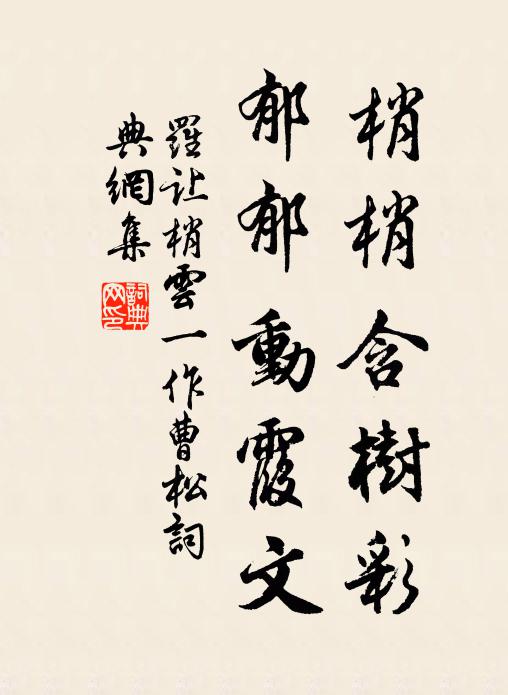 梢梢含樹彩
郁郁動霞文
羅让梢雲一作曹松詞
典網集
詞典网印